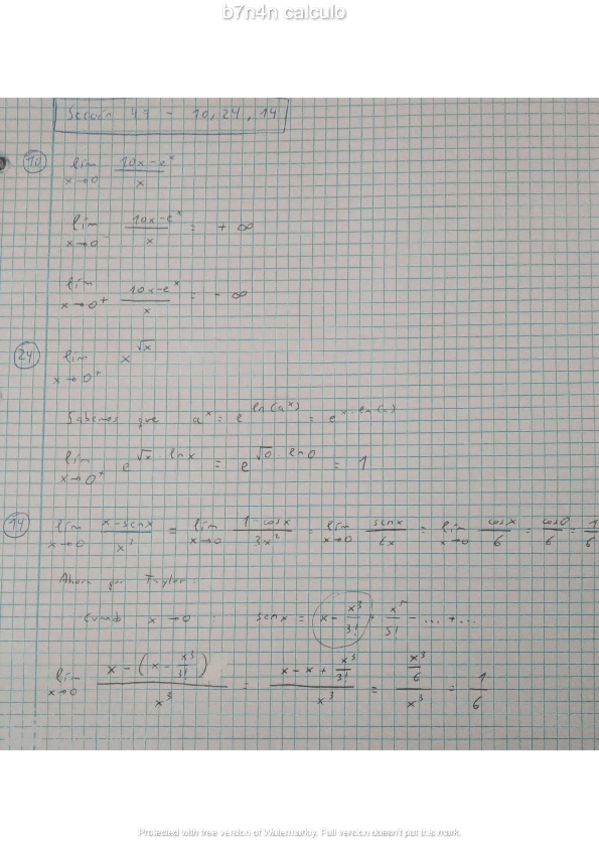 b7n4n calculo
Sección 4.7 - 10, 24, 14
10 lim x→0 (10x-e^x)/x
lim x→0⁻ (10x-e^x)/x = + ∞
lim x→0⁺ (10x-e^x)/x = - ∞
24 lim x→0⁺ x^√x
Sabemos que a^x = e^ln(a^x) = e^x·ln(a)
lim x→0⁺ e^√x·lnx = e^√0·ln0 = 1
14 lim x→0 (x-senx)/x³ = lim x→0 (1-cosx)/3x² = lim x→0 senx/6x = lim x→0 cosx/6 = cos0/6 = 1/6
Ahora por Taylor:
Cuando x→0 : senx = x - x³/3! + x⁵/5! - ... + ...
lim x→0 (x-(x-x³/3!))/x³ = (x-x+x³/3!)/x³ = (x³/6)/x³ = 1/6
Protected with free version of Watermarkly. Full version doesn't put this mark.